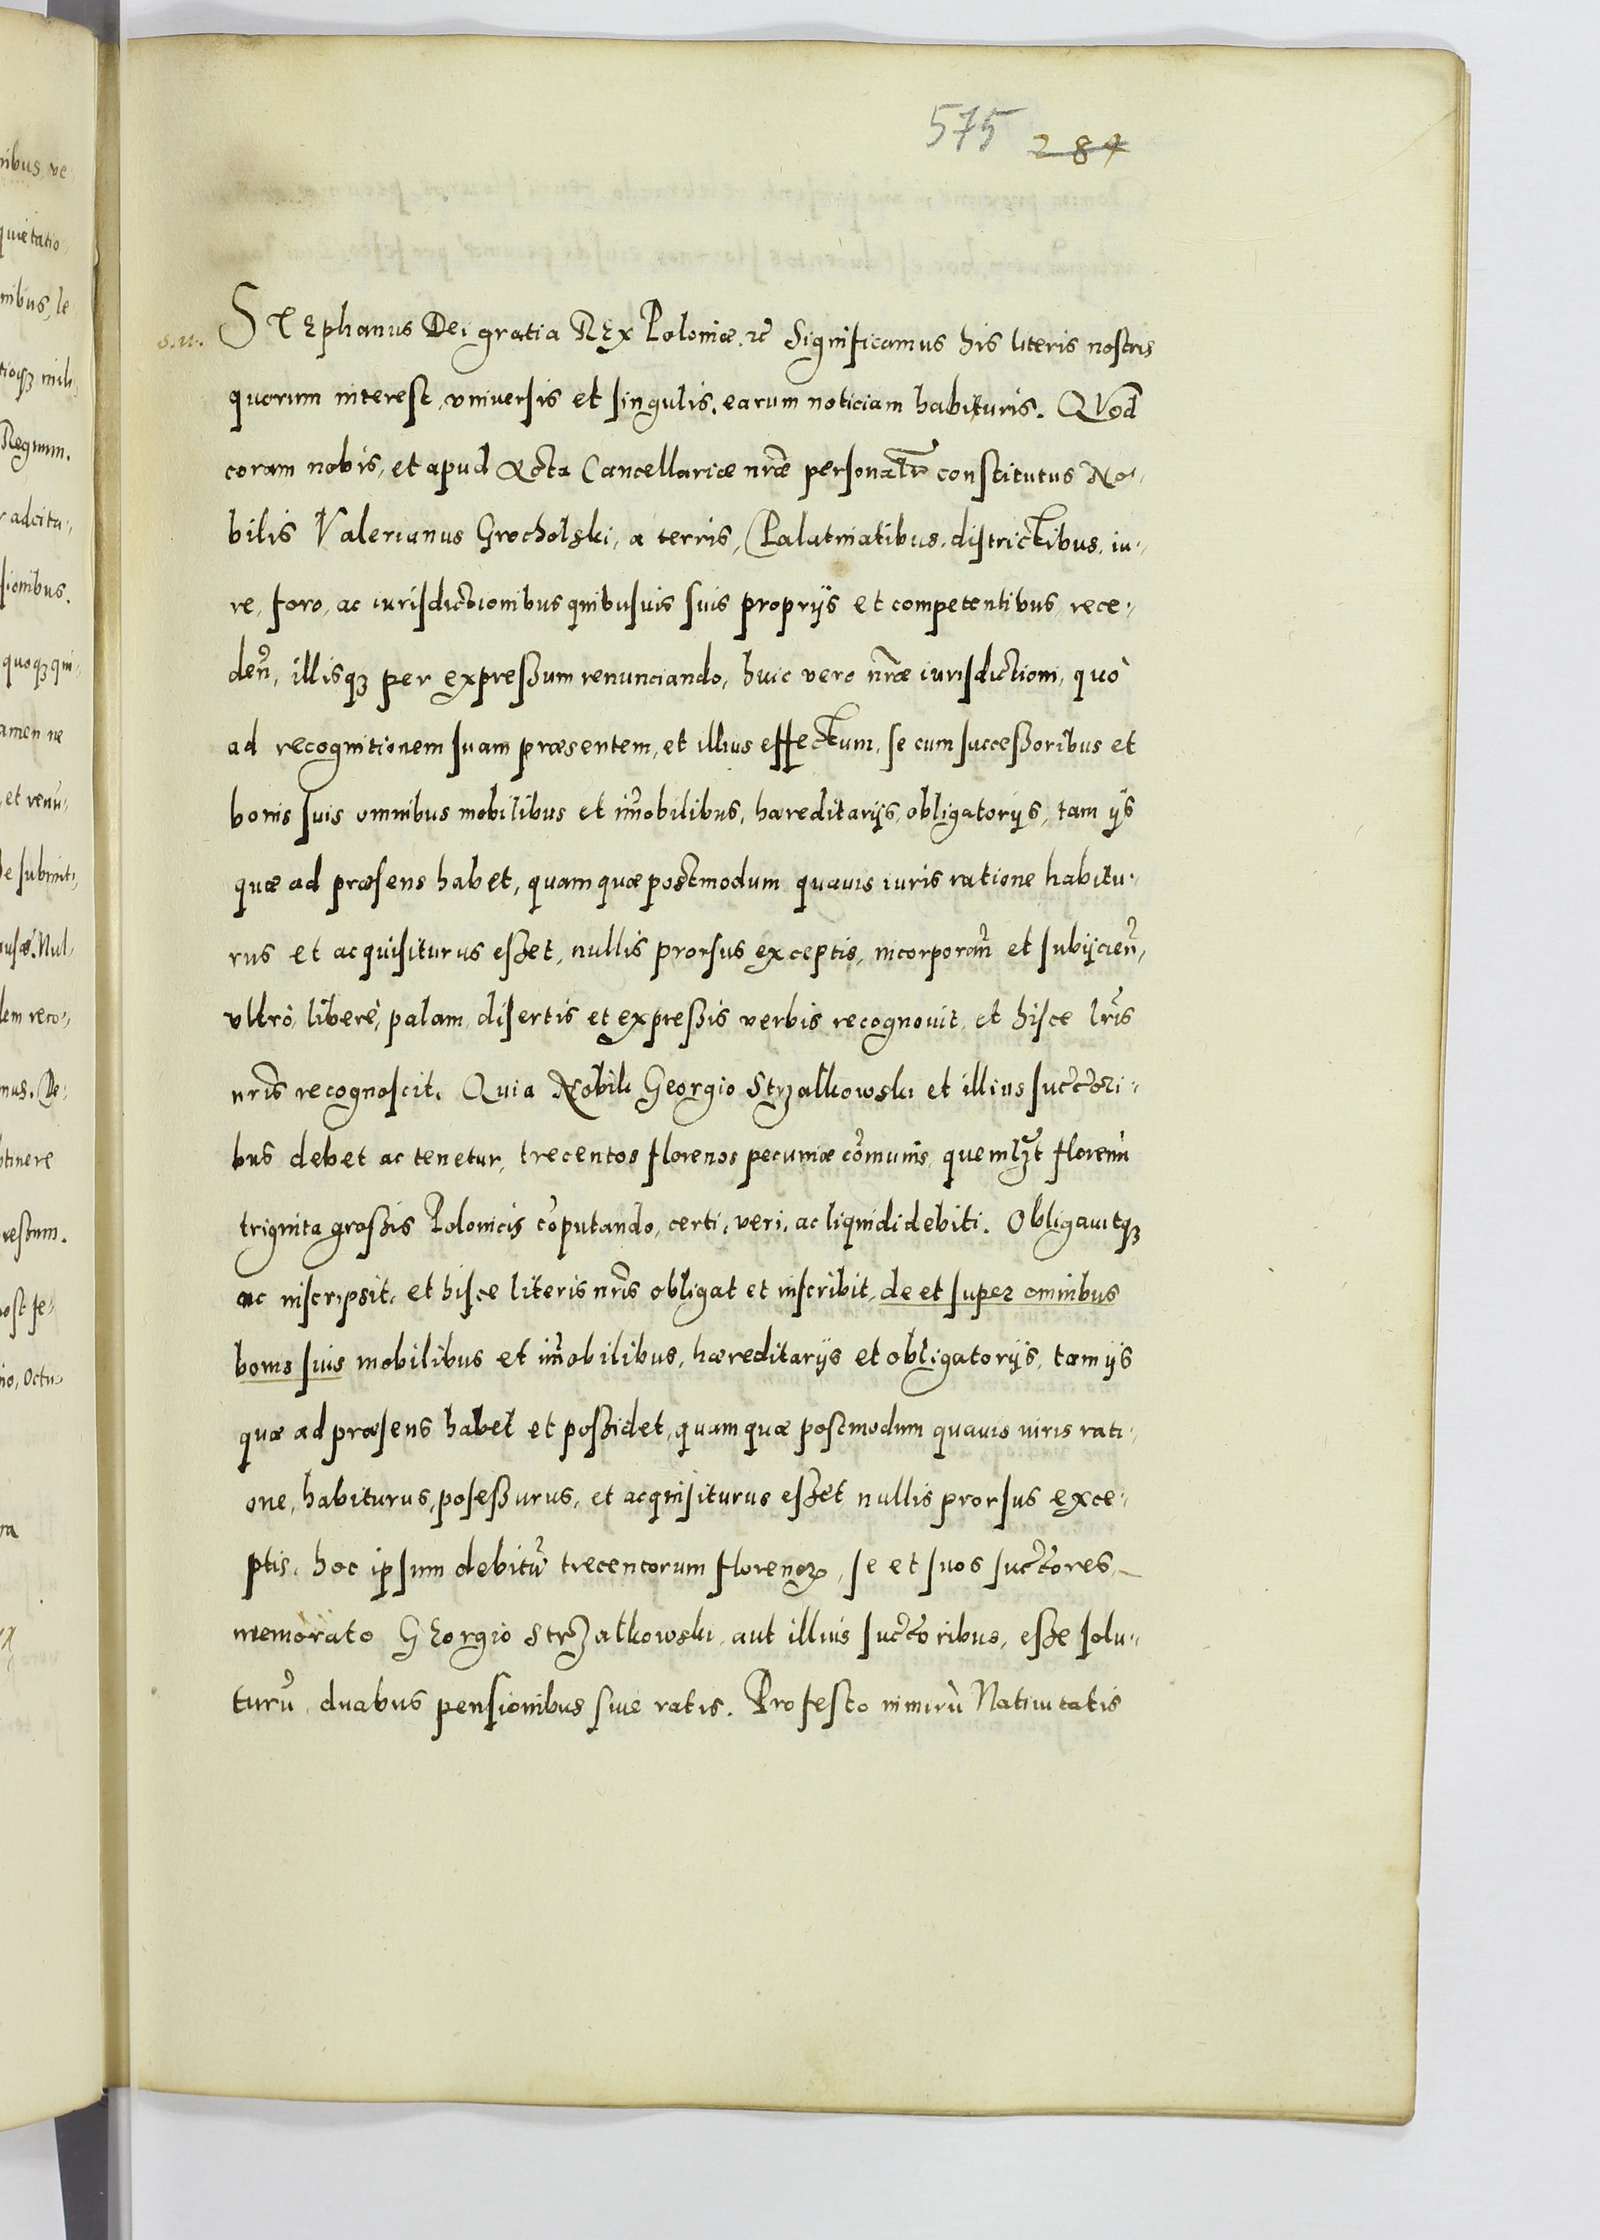 575 287
STEphanus Dei gratia REx Poloniæ etc̃ Significamus his literis nostris
quorum interest, vniuersis et singulis, earum noticiam habituris. QVod
coram nobis, et apud Acta Cancellariæ nr̃æ personalr̃ constitutus No-
bilis Valerianus Grocholski, a terris, Palatinatibus, districtibus, iu-
re, foro, ac iurisdictionibus quibusuis suis proprijs et competentibus, rece-
deñ, illisqꝫ per expreßum renunciando, huic vero nr̃æ iurisdictioni, quò
ad recognitionem suam præsentem, et illius effectum, se cum succeßoribus et
bonis suis omnibus mobilibus et im̃obilibus, hæreditarijs, obligatorijs, tam ijs
quæ ad præsens habet, quam quæ postmodum quauis iuris ratione habitu-
rus et acquisiturus eßet, nullis prorsus exceptis, incorporañ et subijcieñ,
vltrò, liberè, palam, disertis et expreßis verbis recognouit, et hisce lr̃is
nr̃is recognoscit. Quia Nobili Georgio Strzalkowski et illius succ̃tori-
bus debet ac tenetur, trecentos florenos pecuniæ com̃unis, quemlꝫt florenũ
triginta großis Polonicis cõputando, certi, veri, ac liquidi debiti. Obligauitqꝫ
ac inscripsit, et hisce literis nr̃is obligat et inscribit, de et super omnibus
bonis suis mobilibus et im̃obilibus, hæreditarijs et obligatorijs, tam ijs
quæ ad præsens habet et poßidet, quam quæ postmodum quauis iuris rati-
one, habiturus, poseßurus, et acquisiturus eßet nullis prorsus exce-
ptis, hoc ipsum debitũ trecentorum florenoꝝ, se et suos succ̃tores
memorato GEorgio Strzalkowski, aut illius succ̃toribus, eße solu-
turũ, duabus pensionibus siue ratis. Pro festo nimirũ Natiuitatis